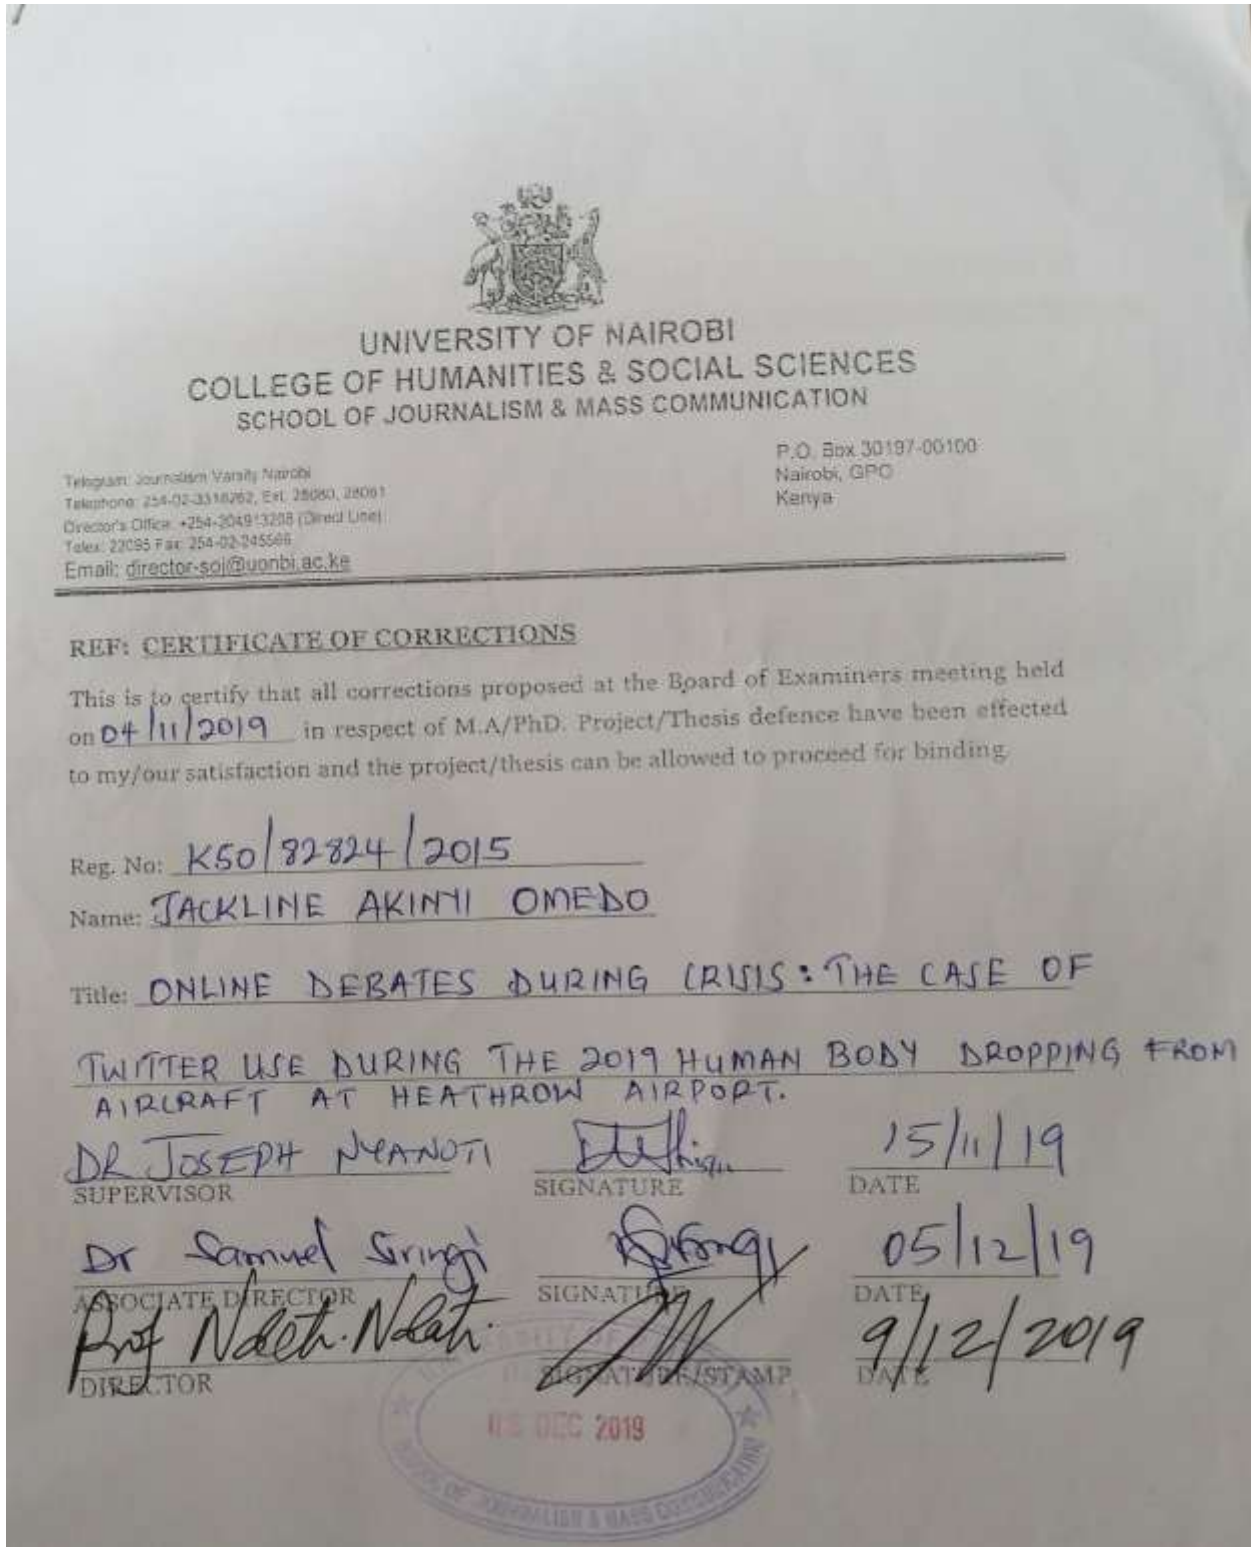 UNIVERSITY OF NAIROBI
COLLEGE OF HUMANITIES & SOCIAL SCIENCES
SCHOOL OF JOURNALISM & MASS COMMUNICATION
Telegram: Journalism Varsity Nairobi
Telephone: 254-02-3318262, Ext. 28080, 28061
Director's Office: +254-204913208 (Direct Line)
Telex: 22095 Fax: 254-02-245566
Email: director-soj@uonbi.ac.ke
P.O. Box 30197-00100
Nairobi, GPO
Kenya
REF: CERTIFICATE OF CORRECTIONS
This is to certify that all corrections proposed at the Board of Examiners meeting held
on 04/11/2019 in respect of M.A/PhD. Project/Thesis defence have been effected
to my/our satisfaction and the project/thesis can be allowed to proceed for binding.
Reg. No: K50/82824/2015
Name: JACKLINE AKINYI OMEDO
Title: ONLINE DEBATES DURING CRISIS: THE CASE OF
TWITTER USE DURING THE 2019 HUMAN BODY DROPPING FROM
AIRCRAFT AT HEATHROW AIRPORT.
DR JOSEPH NYANOTI 15/11/19
SUPERVISOR SIGNATURE DATE
Dr Samuel Siringi 05/12/19
ASSOCIATE DIRECTOR SIGNATURE DATE
Prof Ndeti Ndati 9/12/2019
DIRECTOR SIGNATURE/STAMP DATE
DEC 2019
SCHOOL OF JOURNALISM & MASS COMMUNICATION